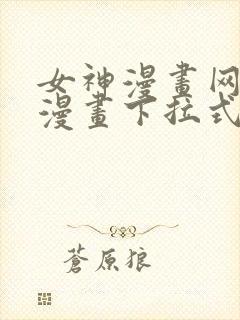 女神漫畫网
漫畫下拉式
蒼原狼